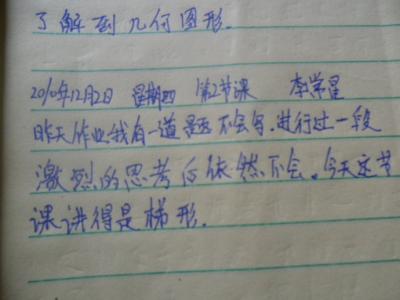 了解到几何图形.
2010年12月2日 星期四 第2节课 李学星
昨天作业我有一道题不会写.进行过一段
激烈的思考后依然不会。今天这节
课讲得是梯形.